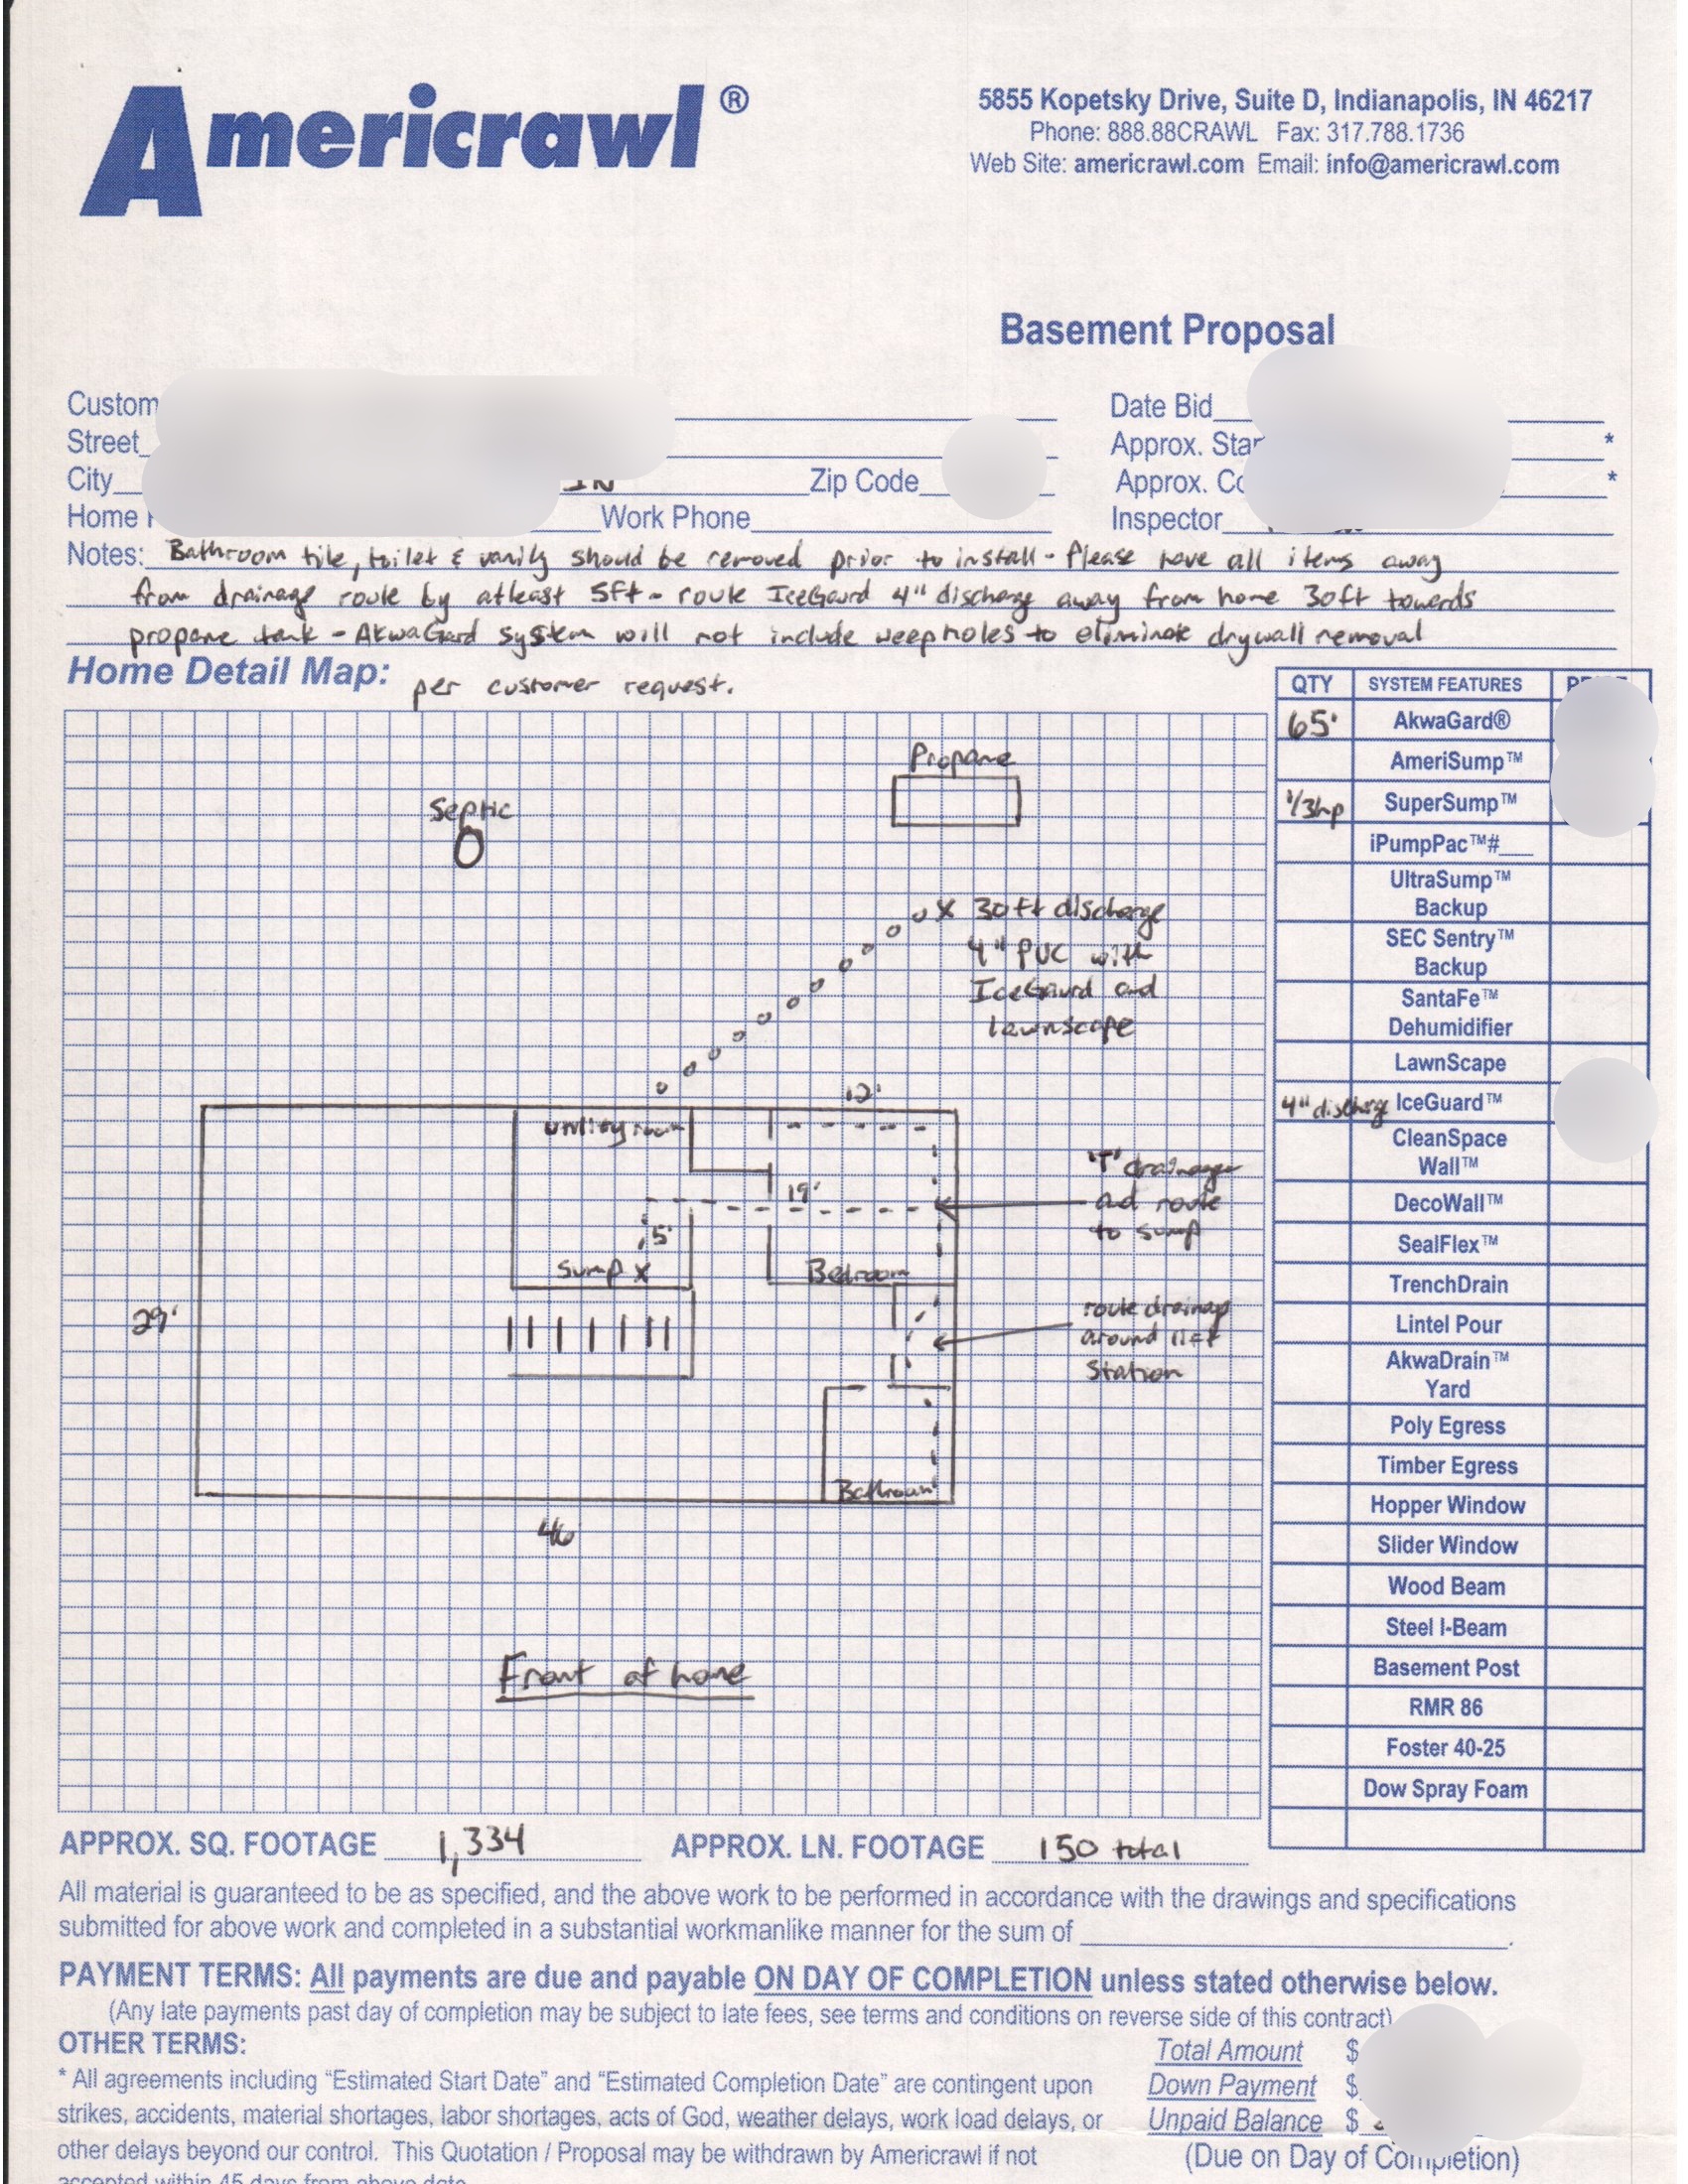 Americrawl®
5855 Kopetsky Drive, Suite D, Indianapolis, IN 46217
Phone: 888.88CRAWL Fax: 317.788.1736
Web Site: americrawl.com Email: info@americrawl.com
Basement Proposal
Custom
Date Bid
Street
Approx. Star
*
City IN Zip Code
Approx. Co
*
Home
Work Phone
Inspector
Notes: Bathroom tile, toilet & vanity should be removed prior to install - Please have all items away
from drainage route by atleast 5ft - route IceGaurd 4" discharge away from home 30ft towards
propane tank - AkwaGard system will not include weepholes to eliminate drywall removal
Home Detail Map: per customer request.
Propane
Septic
X 30ft discharge
4" PVC with
IceGaurd and
lawnscape
12'
utility room
'T' drainage
and route
to sump
19'
5'
Sump X
Bedroom
29'
route drainage
around lift
Station
Bathroom
46'
Front of home
QTY SYSTEM FEATURES
65' AkwaGard®
AmeriSump™
1/3hp SuperSump™
iPumpPac™#___
UltraSump™
Backup
SEC Sentry™
Backup
SantaFe™
Dehumidifier
LawnScape
4" discharge IceGuard™
CleanSpace
Wall™
DecoWall™
SealFlex™
TrenchDrain
Lintel Pour
AkwaDrain™
Yard
Poly Egress
Timber Egress
Hopper Window
Slider Window
Wood Beam
Steel I-Beam
Basement Post
RMR 86
Foster 40-25
Dow Spray Foam
APPROX. SQ. FOOTAGE 1,334 APPROX. LN. FOOTAGE 150 total
All material is guaranteed to be as specified, and the above work to be performed in accordance with the drawings and specifications
submitted for above work and completed in a substantial workmanlike manner for the sum of
PAYMENT TERMS: All payments are due and payable ON DAY OF COMPLETION unless stated otherwise below.
(Any late payments past day of completion may be subject to late fees, see terms and conditions on reverse side of this contract)
OTHER TERMS:
* All agreements including “Estimated Start Date” and “Estimated Completion Date” are contingent upon
strikes, accidents, material shortages, labor shortages, acts of God, weather delays, work load delays, or
other delays beyond our control. This Quotation / Proposal may be withdrawn by Americrawl if not
accepted within 45 days from above date
Total Amount $
Down Payment $
Unpaid Balance $
(Due on Day of Completion)